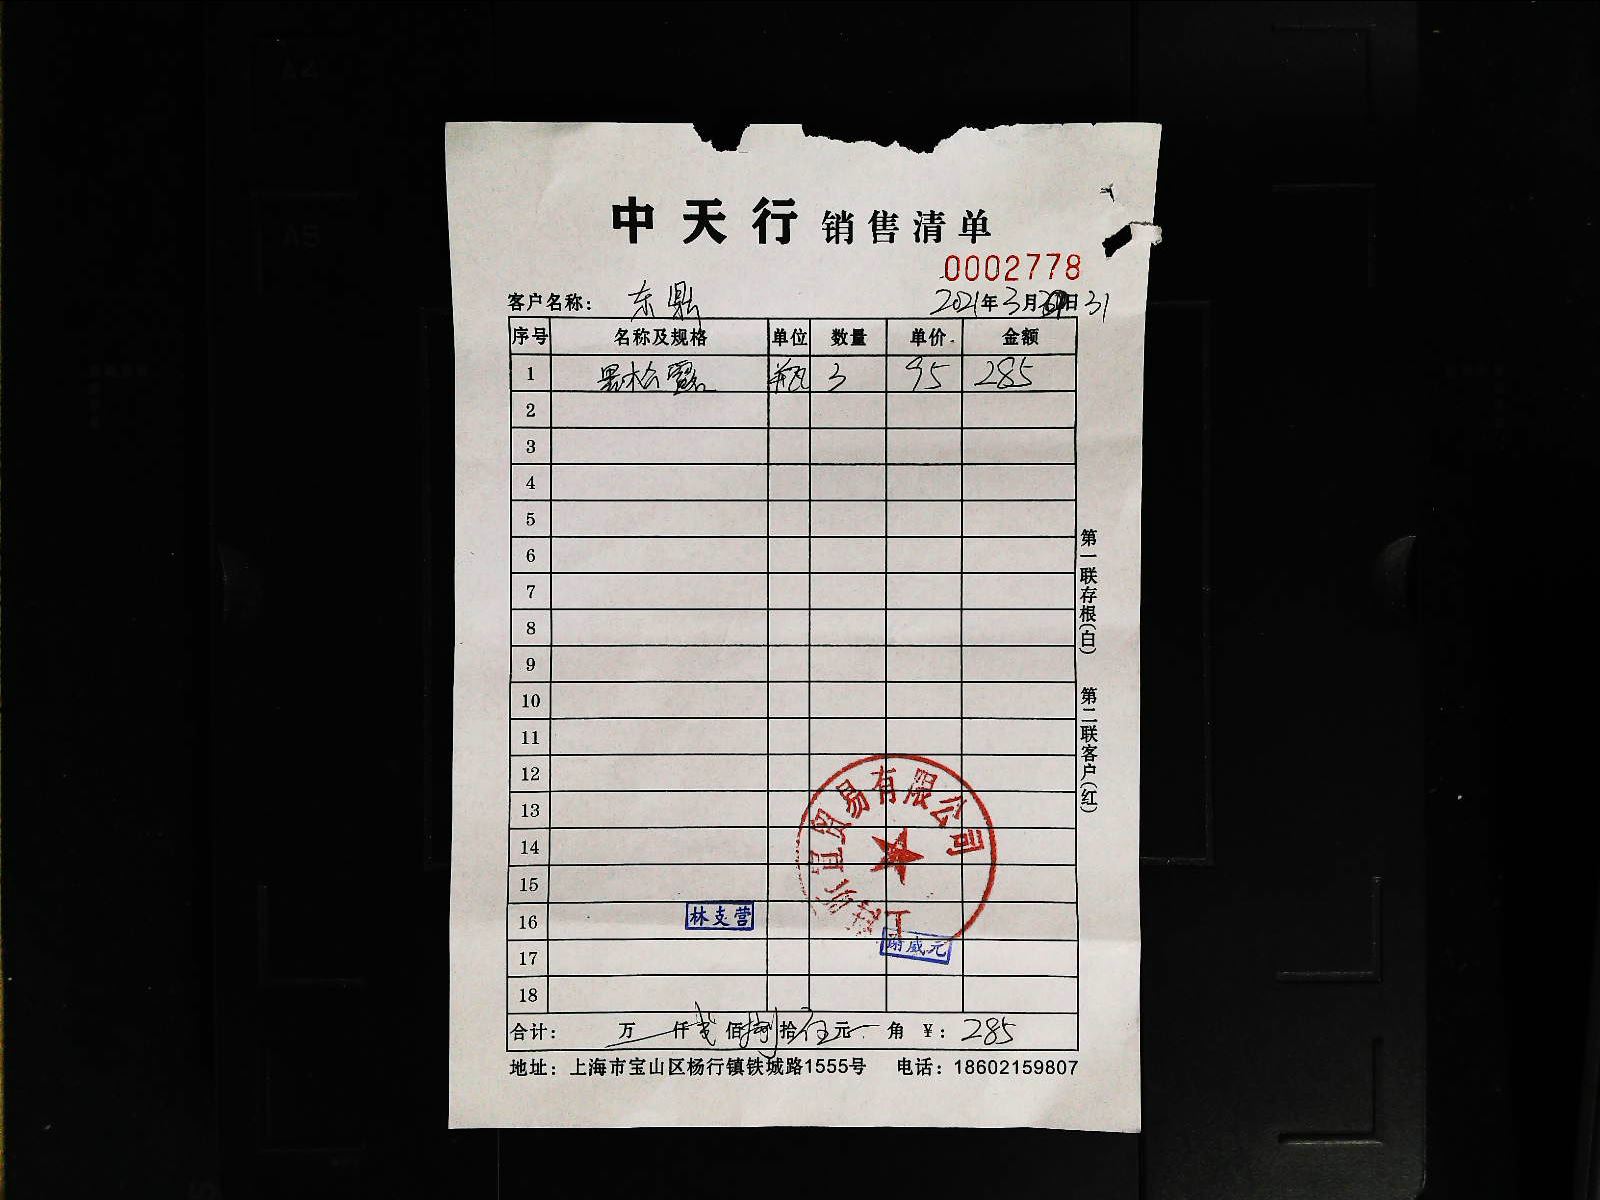 中天行 销售清单
0002778
客户名称： 东鼎 2021年3月日31
序号 名称及规格 单位 数量 单价 金额
1 黑松露 瓶 3 95 285
2
3
4
5
6
7
8
9
10
11
12
13
14
15
16
17
18
贸易有限公司
林支营
谢威元
合计： 万 仟贰佰捌拾伍元 角 ￥：285
地址：上海市宝山区杨行镇铁城路1555号 电话：18602159807
第一联存根(白) 第二联客户(红)